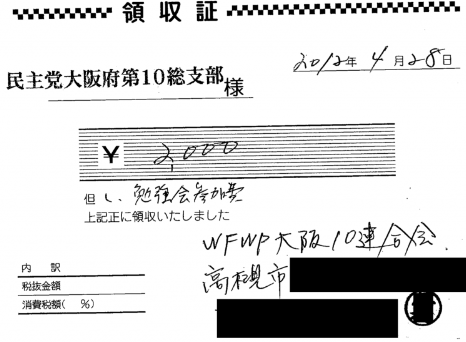 領収証
2012年4月28日
民主党大阪府第10総支部様
¥ 2,000
但し、勉強会参加費
上記正に領収いたしました
WFWP大阪10連合会
高槻市
内 訳
税抜金額
消費税額( %)